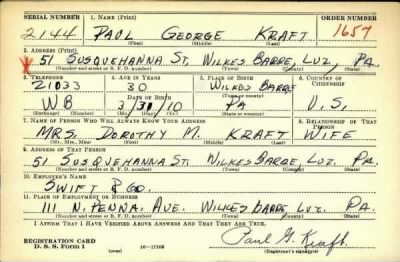 SERIAL NUMBER 1. NAME (Print) ORDER NUMBER
2144 PAUL GEORGE KRAFT 1657
(First) (Middle) (Last)
2. ADDRESS (Print)
51 SUSQUEHANNA ST. WILKES BARRE, LUZ. PA.
(Number and street or R. F. D. number) (Town) (County) (State)
3. TELEPHONE 4. AGE IN YEARS 5. PLACE OF BIRTH 6. COUNTRY OF CITIZENSHIP
21033 30 WILKES BARRE
(Town or county)
WB 3/31/10 PA U.S.
(Exchange) (Mo.) (Day) (Yr.) (State or country)
7. NAME OF PERSON WHO WILL ALWAYS KNOW YOUR ADDRESS 8. RELATIONSHIP OF THAT PERSON
MRS. DOROTHY M. KRAFT WIFE
(Mr., Mrs., Miss) (First) (Middle) (Last)
9. ADDRESS OF THAT PERSON
51 SUSQUEHANNA ST. WILKES BARRE, LUZ. PA.
(Number and street or R. F. D. number) (Town) (County) (State)
10. EMPLOYER'S NAME
SWIFT & CO.
11. PLACE OF EMPLOYMENT OR BUSINESS
111 N. PENNA. AVE. WILKES BARRE LUZ. PA.
(Number and street or R. F. D. number) (Town) (County) (State)
I AFFIRM THAT I HAVE VERIFIED ABOVE ANSWERS AND THAT THEY ARE TRUE.
REGISTRATION CARD
D. S. S. Form 1 (over) 16—17105 Paul G. Kraft
(Registrant's signature)